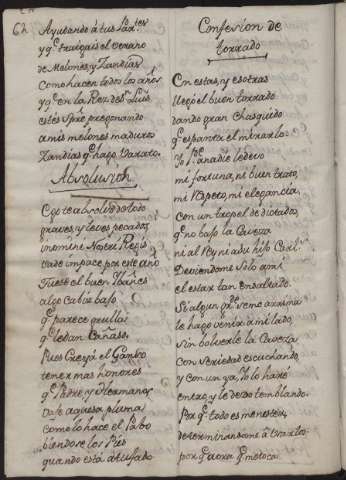 62
Ayudando â tus Partes
y qe. traigais el verano
de Melones, y Zandias
como hacen todos los años
y qe. en la Red de Sn. Luis
estes spre. pregonando
a mis melones maduros
Zandias qe. hago varato.
Absolucion
Ego te absolvo de todo
graves, y leves pecados,
inomine Nostri Regis
vade in pace por este año
Fuese el buen Ibañes
algo cabiz bajo
qe. parece grulla
qe. le dan Cañaso.
Pues Queypô el Gambo
tener mas honores
qe. Padre, y Hermanos
Dase aquesa pluma
como lo hace el Pabo
biendose los Pies
quando está atufado
Confesion de
torrado
En estas, y esotras
llegô el buen torrado
dando gran chasquido
qe. espanta el mirarlo.
Yo Pe. â nadie le devo
mi fortuna, ni buen trato,
mi Respeto, mi elegancia,
con un tropel de dictados,
qe. no bajo la caveza
ni al Rey ni a su hijo Carls.
Deviendome solo a mi
el estar tan ensalzado.
Si algun gde. se me arrima
le hago venir â mi lado,
sin bolverle la caveza
con seriedad escuchando,
y con un ya, Yo lo haré
entro, y le dexo temblando.
Por qe. todo es menester
determinandome â tratarlos
por qe. aora qe. me toca.